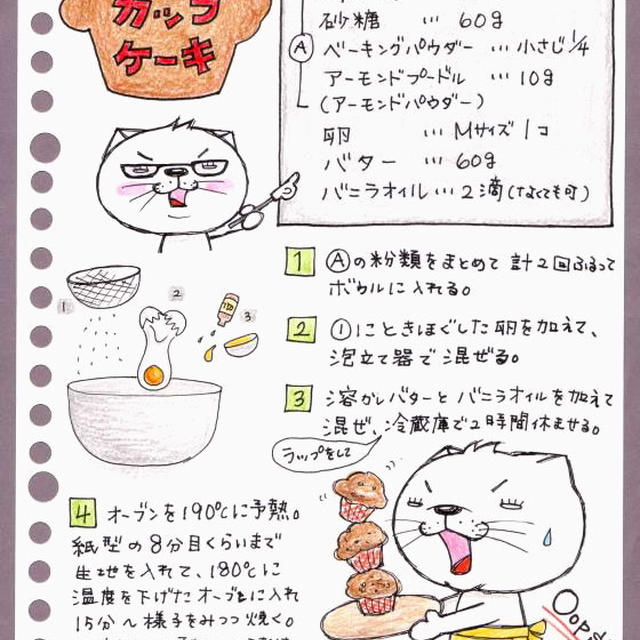 カップ
ケーキ
砂糖 … 60g
Ⓐ ベーキングパウダー … 小さじ1/4
アーモンドプードル … 10g
(アーモンドパウダー)
卵 … Mサイズ1コ
バター … 60g
バニラオイル … 2滴(なくても可)
1 Ⓐの粉類をまとめて 計2回ふるって
ボウルに入れる。
2 ①にときほぐした卵を加えて、
泡立て器で混ぜる。
3 溶かしバターとバニラオイルを加えて
混ぜ、冷蔵庫で2時間休ませる。
ラップをして
1
2
3
4 オーブンを190℃に予熱。
紙型の8分目くらいまで
生地を入れて、180℃に
温度を下げたオーブンに入れ
15分〜様子をみつつ焼く。